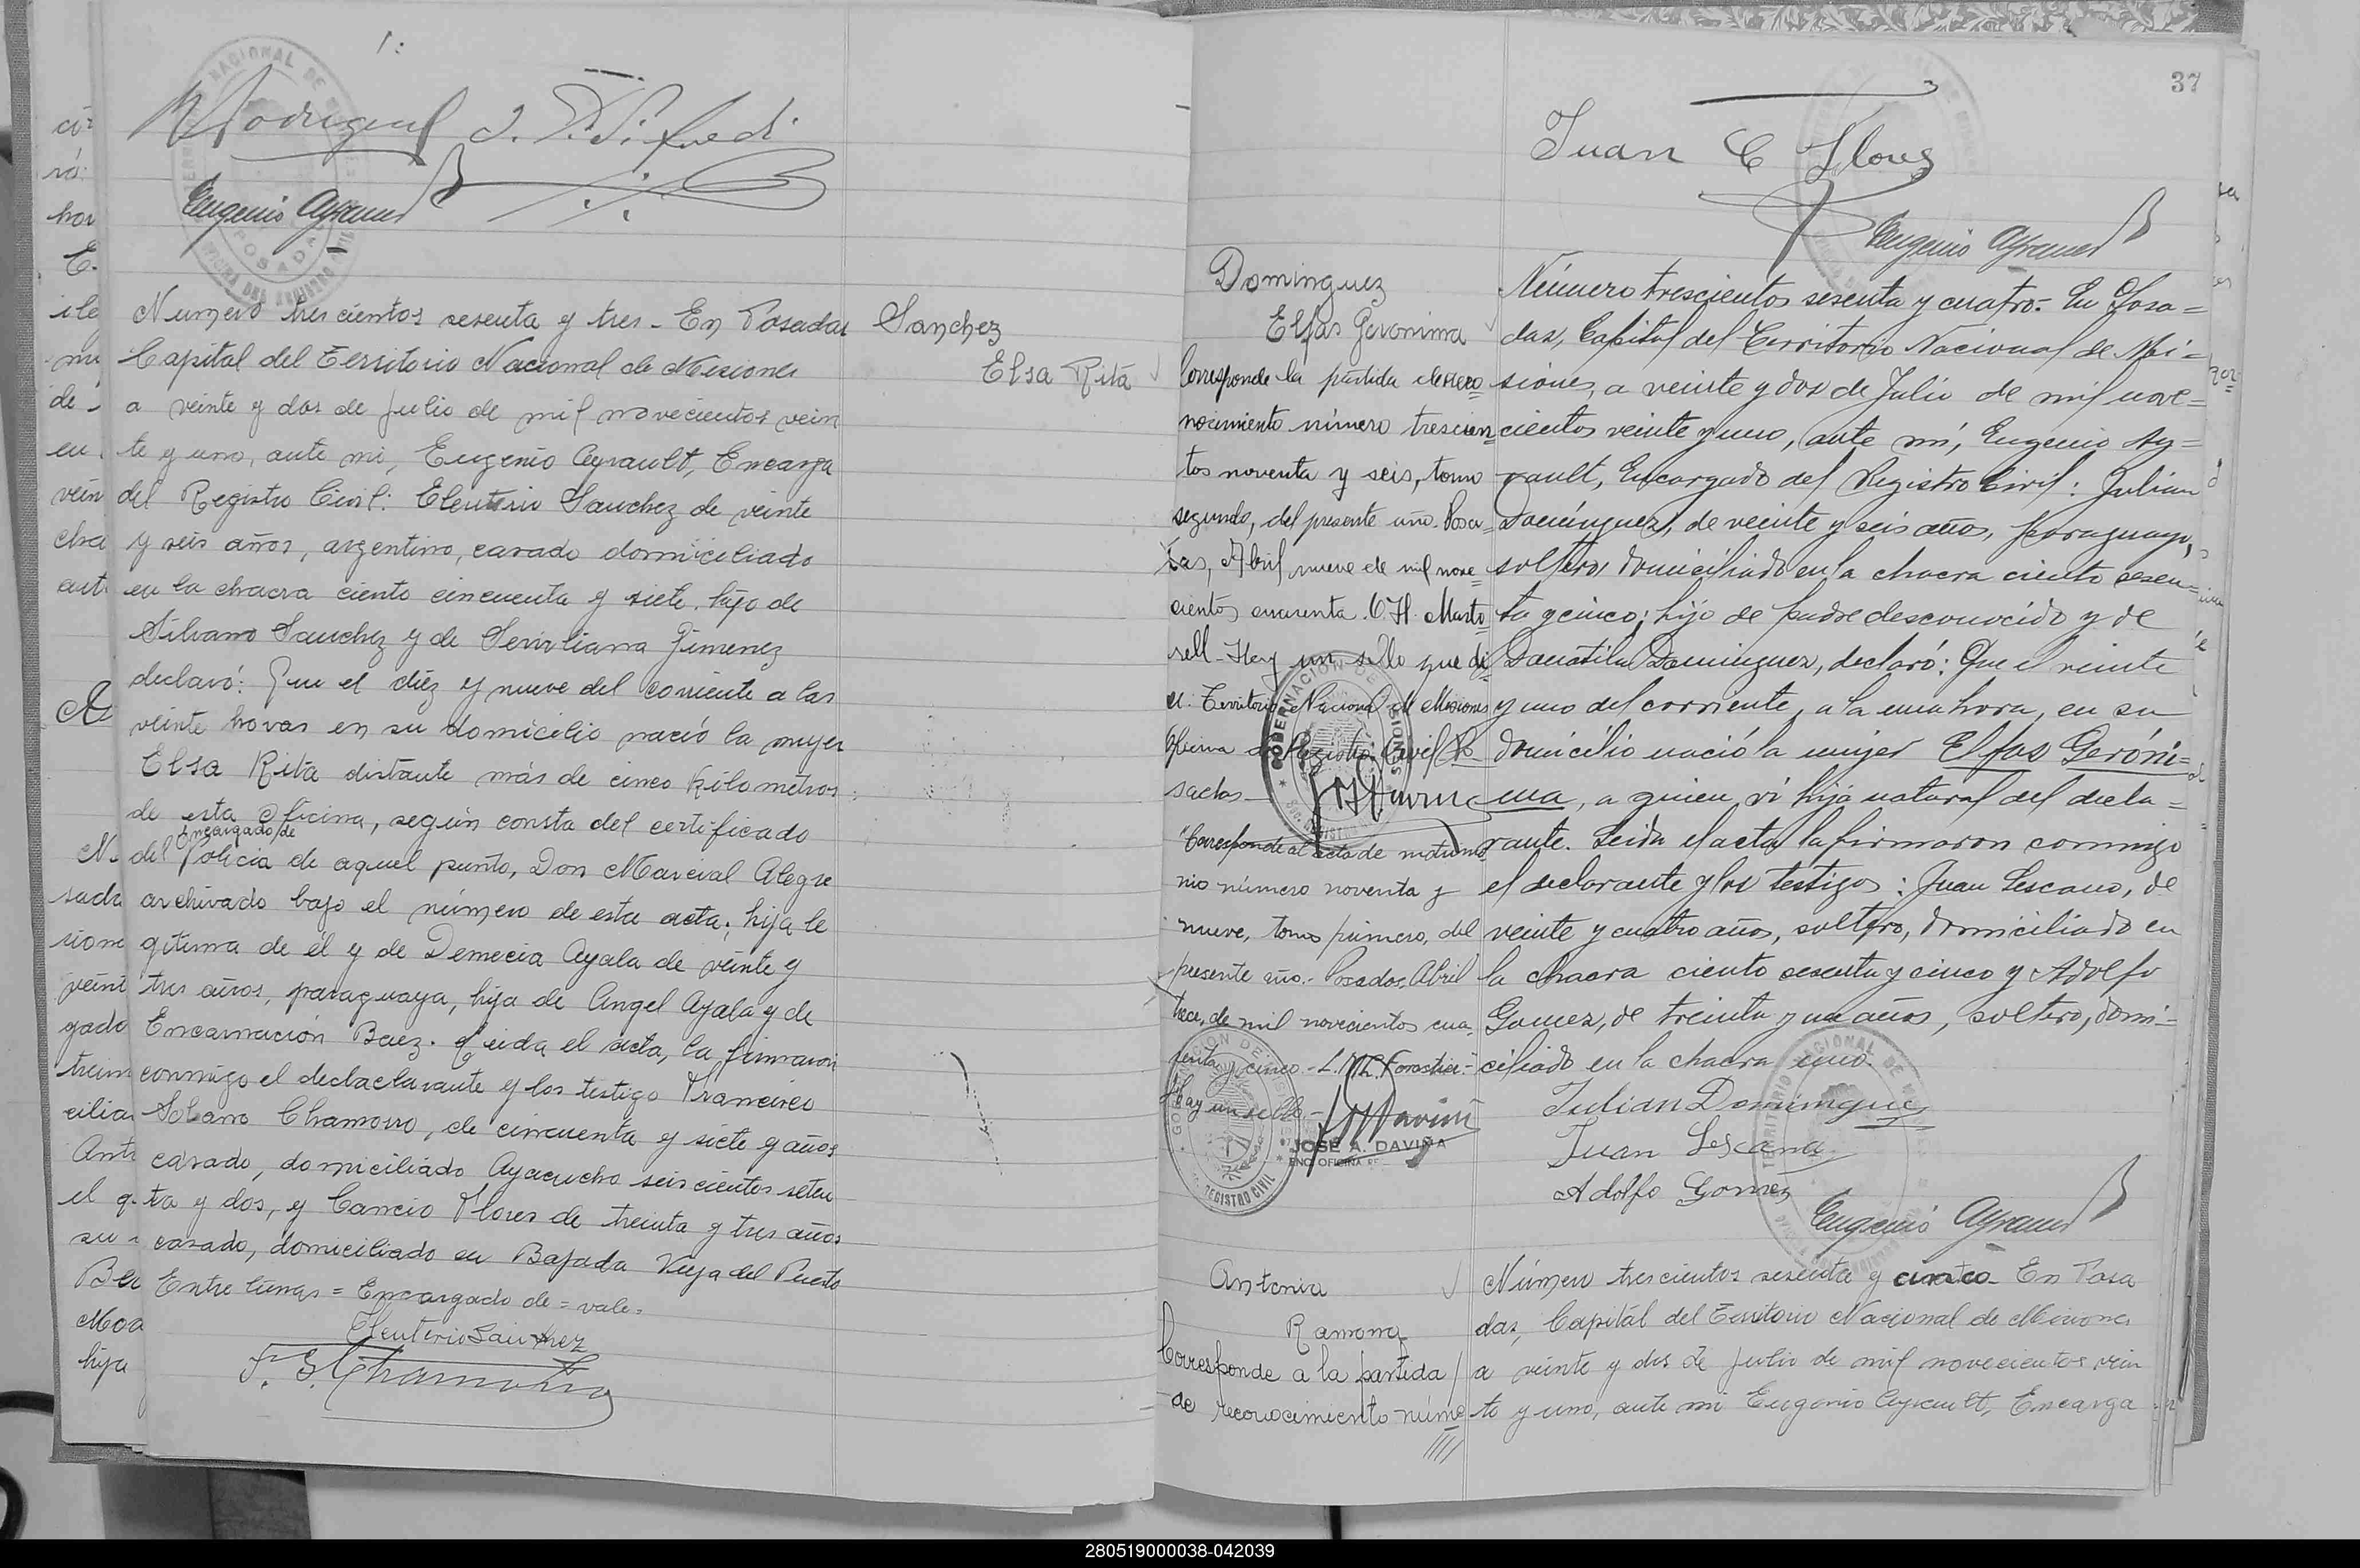 Eugenio Ayrault
Numero trescientos sesenta y tres - En Posadas
Capital del Territorio Nacional de Misiones
a veinte y dos de Julio de mil novecientos vein
te y uno, ante mi, Eugenio Ayrault, Encarga
del Registro Civil: Eleuterio Sanchez de veinte
y seis años, argentino, casado domiciliado
en la chacra ciento cincuenta y siete, hijo de
Silvano Sanchez y de Jimenez
declaró: Que el diéz y nueve del corriente a las
veinte horas en su domicilio nació la mujer
Elsa Rita distante más de cinco kilometros
de esta Oficina, según consta del certificado
Encargado de
del Policia de aquel punto, Don Marcial Alegre
archivado bajo el número de esta acta; hija le
gitima de él y de Demecia Ayala de veinte y
tres años, paraguaya, hija de Angel Ayala y de
Encarnación Baez. Leida el acta, la firmaron
conmigo el declaclarante y los testigo Francisco
Solano Chamorro, de cincuenta y siete años
casado, domiciliado Ayacucho seiscientos seten
ta y dos, y Cancio Flores de treinta y tres años
casado, domiciliado en Bajada Vieja del Puerto
Entre lineas = Encargado de = vale.
Eleuterio Sanchez
F. S. Chamorro
Sanchez
Elsa Rita
37
Juan C Flores
Eugenio Ayrault
Dominguez
Elfas Geronima
Corresponde la partida de reco=
nocimiento número trescien=
tos noventa y seis, tomo
segundo, del presente año. Posa=
das, Abril nueve de mil nove=
cientos cuarenta.
sell - Hay un sello que di=
ce: Territorio Nacional de Misiones
Oficina de Registro Civil Po=
sadas
"Corresponde al acta de matrimo
nio número noventa y
nueve, tomo primero, del
presente año.- Posadas, Abril
trece, de mil novecientos cua
renta y cinco.-
Hay un sello.-
JOSÉ A. DAVIÑA
ENC. OFICINA
REGISTRO CIVIL
Número trescientos sesenta y cuatro.- En Posa=
das, Capital del Territorio Nacional de Mi=
siones, a veinte y dos de Julio de mil nove=
cientos veinte y uno, ante mí, Eugenio Ay=
rault, Encargado del Registro Civil: Julian
Domínguez, de veinte y seis años, paraguayo,
soltero, domiciliado en la chacra ciento sesen=
ta y cinco; hijo de padre desconocido y de
Dominguez, declaró: Que el veinte
y uno del corriente, a la una hora, en su
domicilio nació la mujer Elfas Geróni=
ma, a quien ví hija natural del decla=
rante. Leída el acta, la firmaron conmigo
el declarante y los testigos: Juan Lescano, de
veinte y cuatro años, soltero, domiciliado en
la chacra ciento sesenta y cinco y Adolfo
Gomez, de treinta y un años, soltero, domi=
ciliado en la chacra uno.
Julian Dominguez
Juan Lescano
Adolfo Gomez
Eugenio Ayrault
Antonia
Ramona
Corresponde a la partida
de reconocimiento núme
Número trescientos sesenta y cinco - En Posa
das, Capital del Territorio Nacional de Misiones
a veinte y dos de Julio de mil novecientos vein
te y uno, ante mi Eugenio Ayrault, Encarga
280519000038-042039